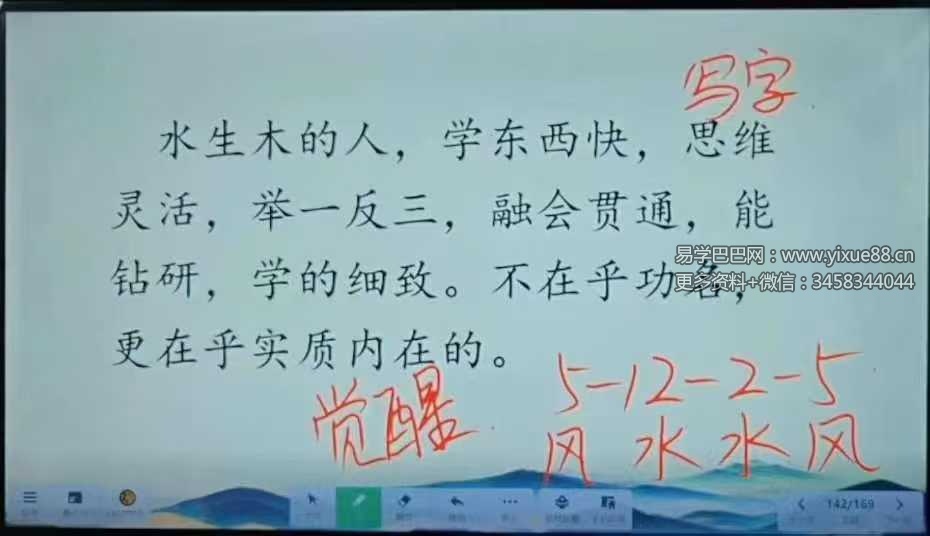 写字
水生木的人，学东西快，思维
灵活，举一反三，融会贯通，能
钻研，学的细致。不在乎功名，
更在乎实质内在的。
易学巴巴网：www.yixue88.cn
更多资料+微信：3458344044
5-12-2-5
觉醒
风 水 水 风
142/169